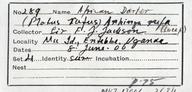 No 289 Name African Darter
(Plotus Rufus) Anhinga rufa
Collector Sir F. J. Jackson
Locality Mu Id, Entebbe, Uganda
Date 8 June. 06
Set Identity Incubation
Nest